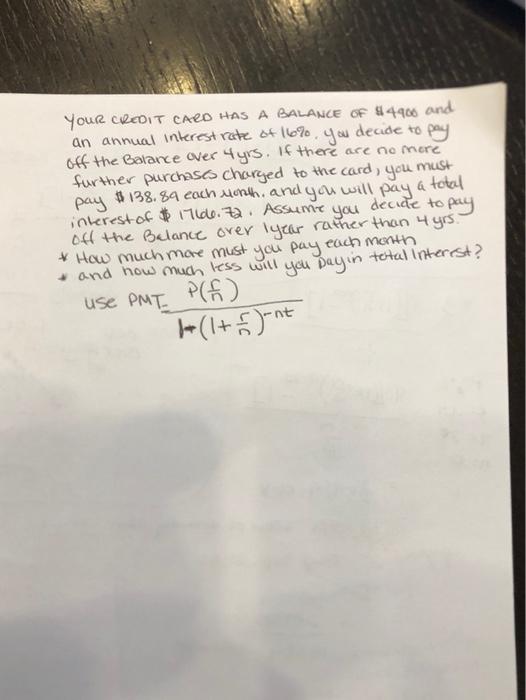 YOUR CREDIT CARD HAS A BALANCE OF $4900 and
an annual interest rate of 16%. you decide to pay
off the Balance over 4yrs. If there are no more
further purchases charged to the card, you must
pay $138.89 each month. and you will pay a total
interest of $1766.72. Assume you decide to pay
off the Balance over 1year rather than 4 yrs.
* How much more must you pay each month
* and how much less will you pay in total Interest?
use PMT = P(r/n)
1-(1+r/n)^-nt